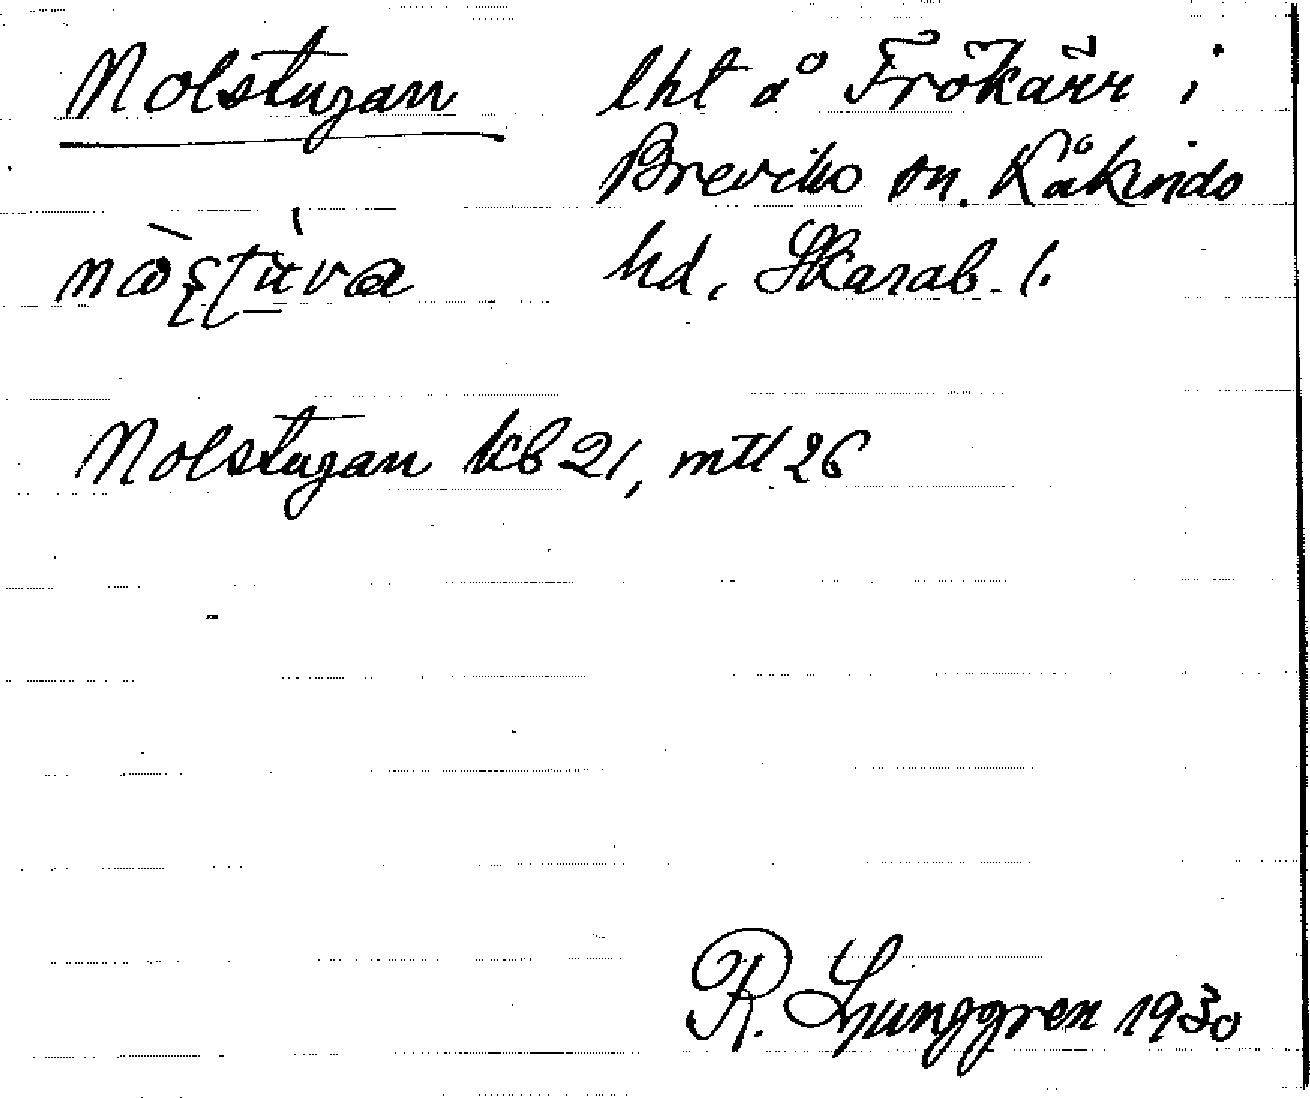 Nolstugan lht å Frökärr i
Breviks sn. Kåkinds
hd, Skarab. l.
Nolstugan kb 21, mtl 26
R. Ljunggren 1930